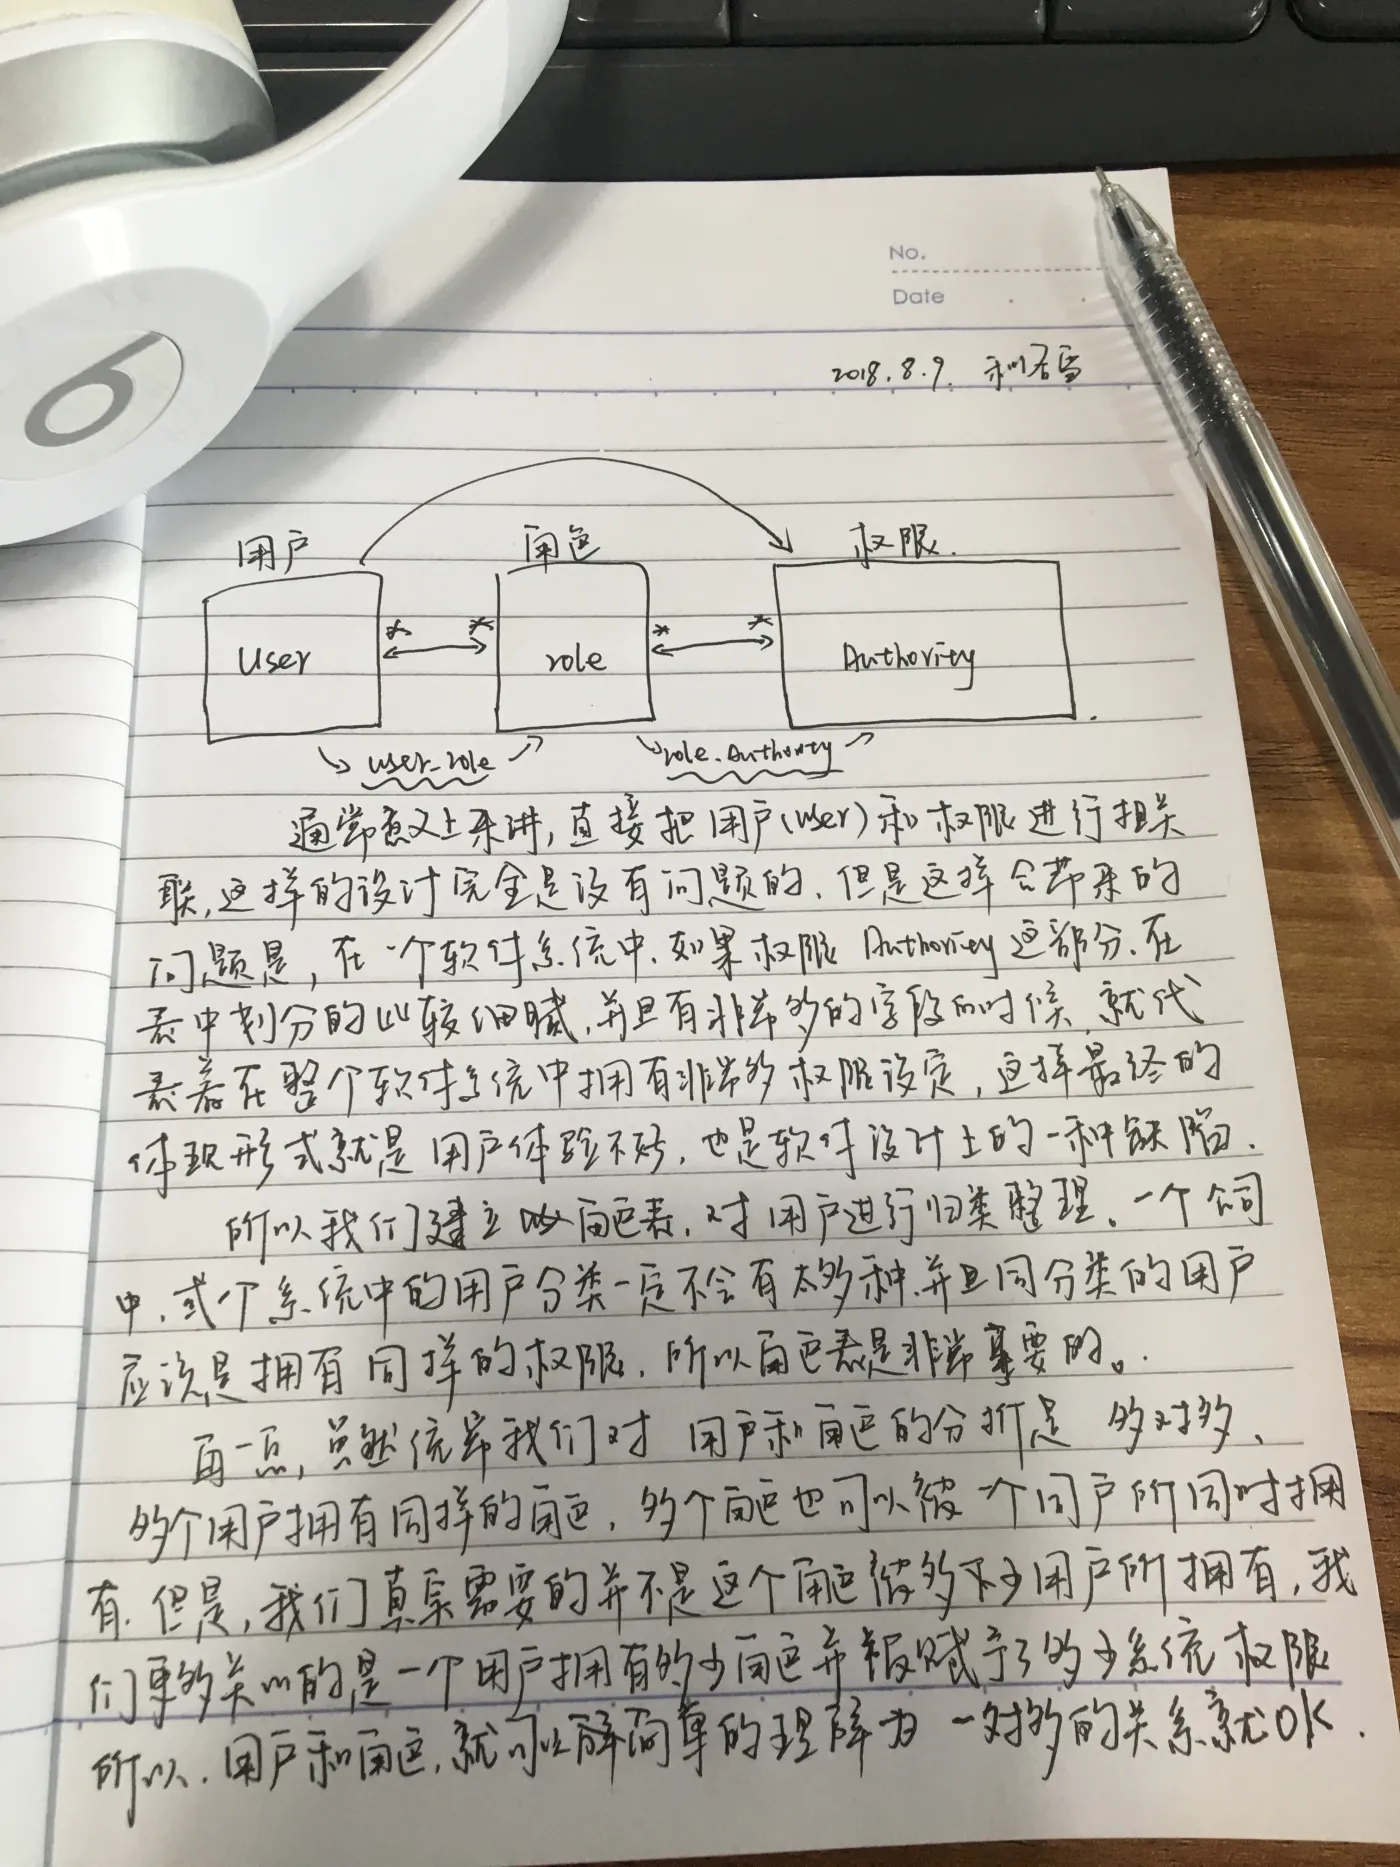 No.
Date
2018.8.9.
用户 角色 权限.
* * * *
User role Authority
user_role role.Authority
通常意义上来讲,直接把用户(user)和权限进行相关
联,这样的设计完全是没有问题的,但是这样会带来的
问题是,在一个软件系统中,如果权限Authority这部分,在
表中划分的比较细腻,并且有非常多的字段的时候,就代
表着在整个软件系统中拥有非常多权限设定,这样最终的
体现形式就是用户体验不好,也是软件设计上的一种缺陷.
所以我们建立 角色表,对用户进行归类整理。一个公司
中,或个系统中的用户分类一定不会有太多种,并且同分类的用户
应该是拥有同样的权限,所以角色表是非常重要的。
再一点,虽然 我们对 用户和角色的分析是 多对多、
多个用户拥有同样的角色,多个角色也可以被一个用户所同时拥
有.但是,我们真正需要的并不是这个角色被多少用户所拥有,我
们更多关心的是一个用户拥有多少角色并被赋予了多少系统权限
所以.用户和角色,就可以 简单的理解为 一对多的关系就OK.